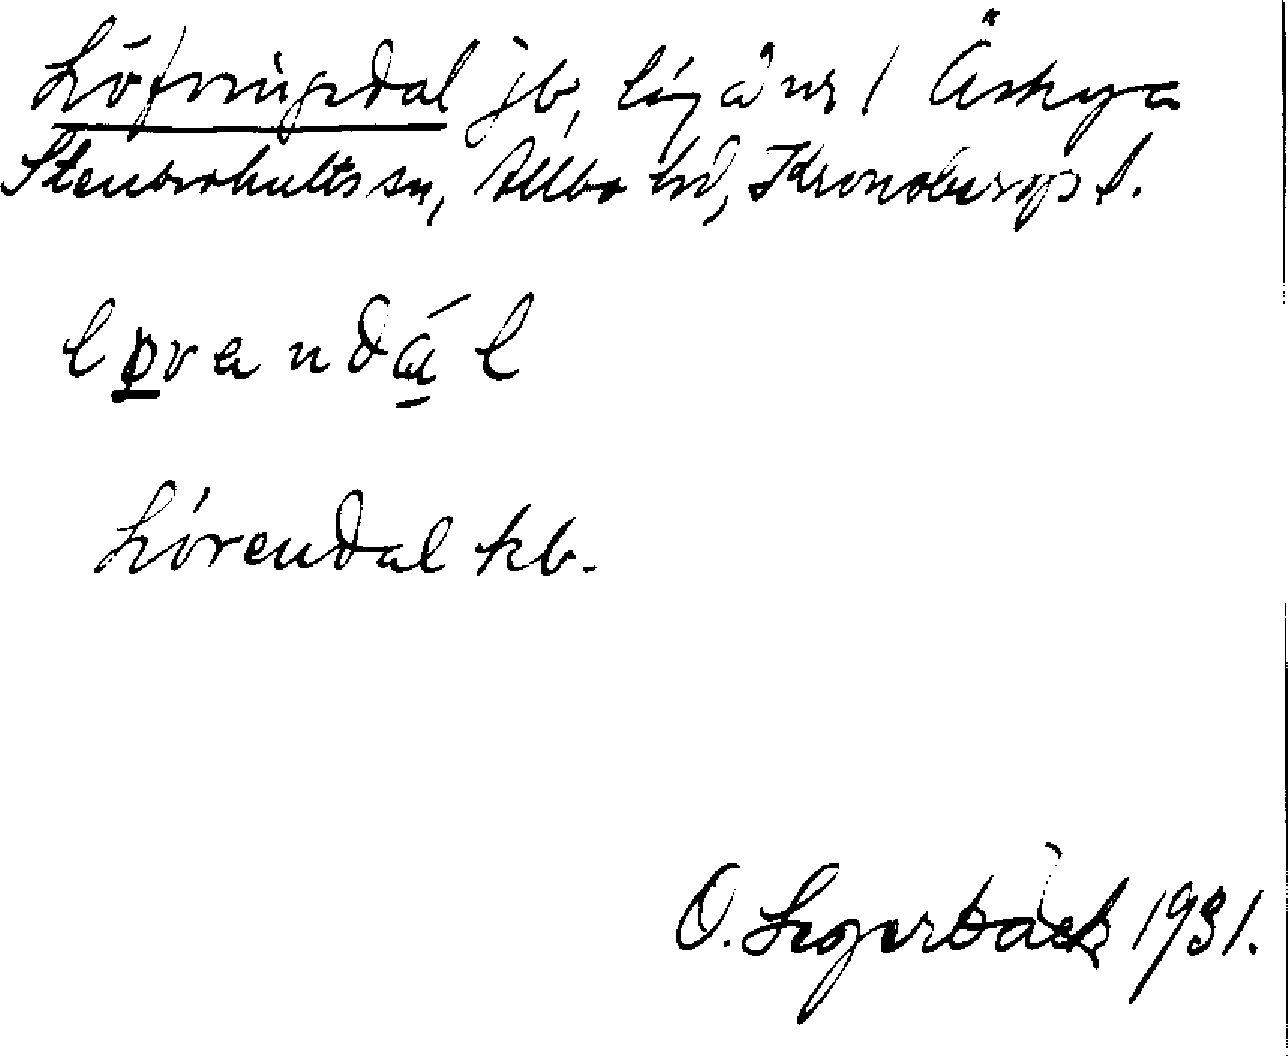 Löfvingsdal jb, lög å nr 1 Äskya
Stenbrohults sn, Allbo hd, Kronobergs l.
løvendál
Lövendal kb.
O. Segerbäck 1931.